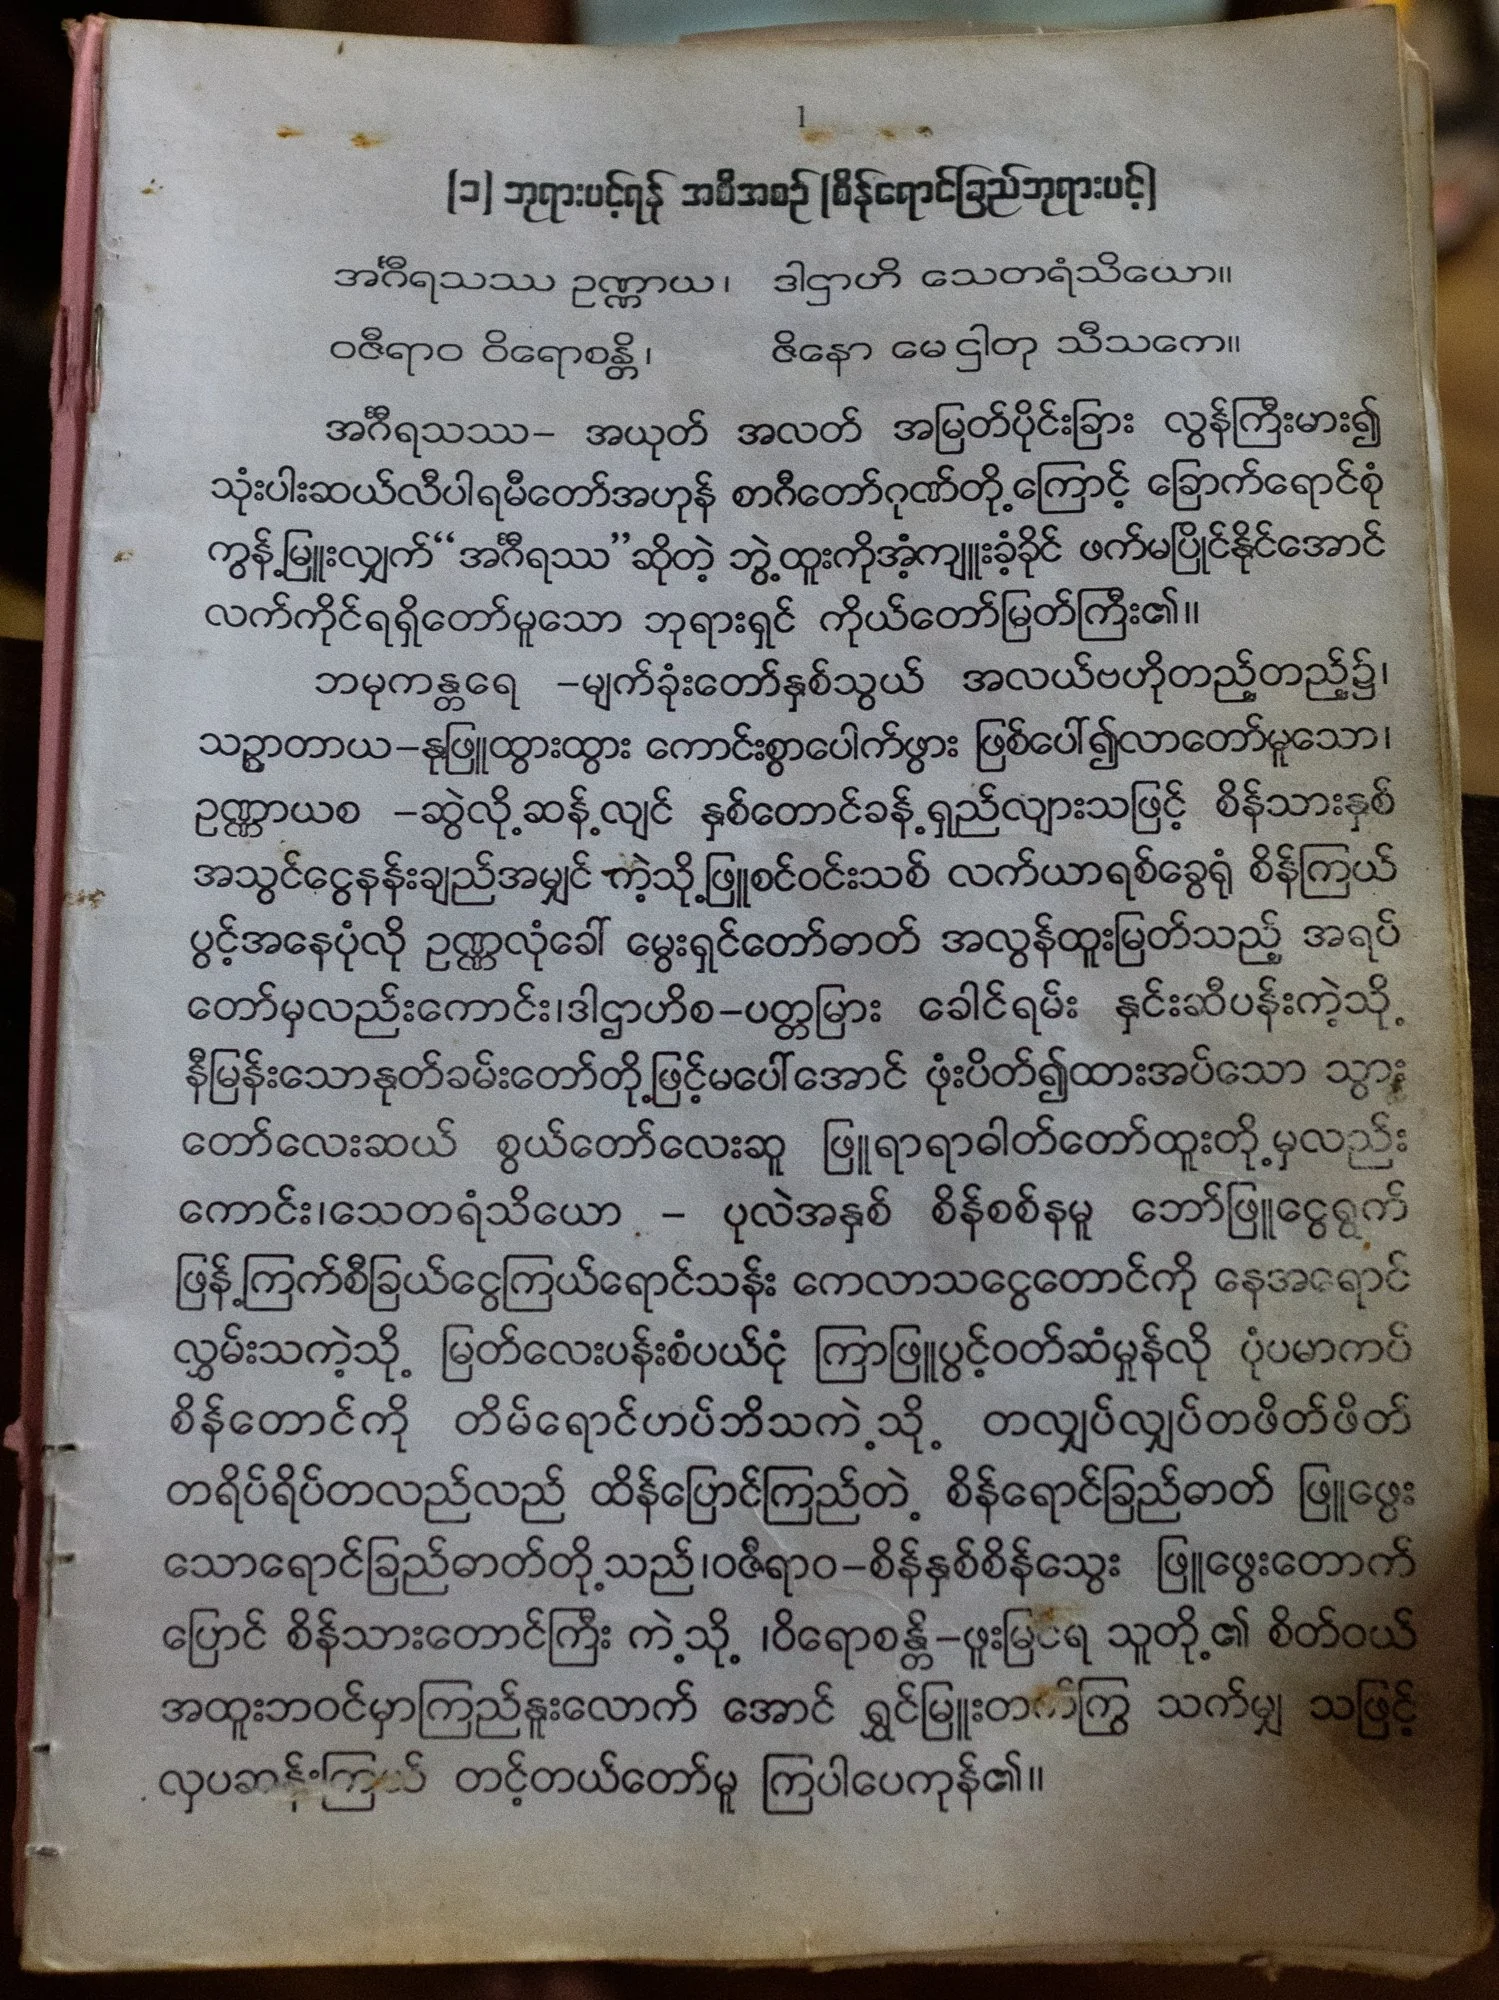 1
(၁) ဘုရားပင့်ရန် အစီအစဉ် (စိန်ရောင်ခြည်ဘုရားပင့်)
အင်္ဂီရသဿ ဥဏ္ဏာယ၊ ဒါဌာဟိ သေတရံသိယော။
ဝဇီရာဝ ဝိရောစန္တိ၊ ဇိနော မေ ဌါတု သီသကေ။
အင်္ဂီရသဿ– အယုတ် အလတ် အမြတ်ပိုင်းခြား လွန်ကြီးမား၍
သုံးပါးဆယ်လီပါရမီတော်အဟုန် စာဂီတော်ဂုဏ်တို့ကြောင့် ခြောက်ရောင်စုံ
ကွန့်မြူးလျှက်“အင်္ဂီရဿ”ဆိုတဲ့ ဘွဲ့ထူးကိုအံ့ကျူးခံ့ခိုင် ဖက်မပြိုင်နိုင်အောင်
လက်ကိုင်ရရှိတော်မူသော ဘုရားရှင် ကိုယ်တော်မြတ်ကြီး၏။
ဘမုကန္တရေ –မျက်ခုံးတော်နှစ်သွယ် အလယ်ဗဟိုတည့်တည့်၌၊
သဉ္ဇာတာယ–နုဖြူထွားထွား ကောင်းစွာပေါက်ဖွား ဖြစ်ပေါ်၍လာတော်မူသော၊
ဥဏ္ဏာယစ –ဆွဲလို့ဆန့်လျင် နှစ်တောင်ခန့်ရှည်လျားသဖြင့် စိန်သားနှစ်
အသွင်ငွေနန်းချည်အမျှင် ကဲ့သို့ဖြူစင်ဝင်းသစ် လက်ယာရစ်ခွေရုံ စိန်ကြယ်
ပွင့်အနေပုံလို ဥဏ္ဏလုံခေါ် မွေးရှင်တော်ဓာတ် အလွန်ထူးမြတ်သည့် အရပ်
တော်မှလည်းကောင်း၊ဒါဌာဟိစ–ပတ္တမြား ခေါင်ရမ်း နှင်းဆီပန်းကဲ့သို့
နီမြန်းသောနှုတ်ခမ်းတော်တို့ဖြင့်မပေါ်အောင် ဖုံးပိတ်၍ထားအပ်သော သွား
တော်လေးဆယ် စွယ်တော်လေးဆူ ဖြူရာရာဓါတ်တော်ထူးတို့မှလည်း
ကောင်း၊သေတရံသိယော – ပုလဲအနှစ် စိန်စစ်နမူ ဘော်ဖြူငွေရွက်
ဖြန့်ကြက်စီခြယ်ငွေကြယ်ရောင်သန်း ကေလာသငွေတောင်ကို နေအရောင်
လွှမ်းသကဲ့သို့ မြတ်လေးပန်းစံပယ်ငုံ ကြာဖြူပွင့်ဝတ်ဆံမှုန်လို ပုံပမာကပ်
စိန်တောင်ကို တိမ်ရောင်ဟပ်ဘိသကဲ့သို့ တလျှပ်လျှပ်တဖိတ်ဖိတ်
တရိပ်ရိပ်တလည်လည် ထိန်ပြောင်ကြည်တဲ့ စိန်ရောင်ခြည်ဓာတ် ဖြူဖွေး
သောရောင်ခြည်ဓာတ်တို့သည်၊ဝဇီရာဝ–စိန်နှစ်စိန်သွေး ဖြူဖွေးတောက်
ပြောင် စိန်သားတောင်ကြီး ကဲ့သို့ ၊ဝိရောစန္တိ–ဖူးမြင်ရ သူတို့၏ စိတ်ဝယ်
အထူးဘဝင်မှာကြည်နူးလောက် အောင် ရွှင်မြူးတက်ကြွ သက်မျှ သဖြင့်
လှပဆန်းကြယ် တင့်တယ်တော်မူ ကြပါပေကုန်၏။